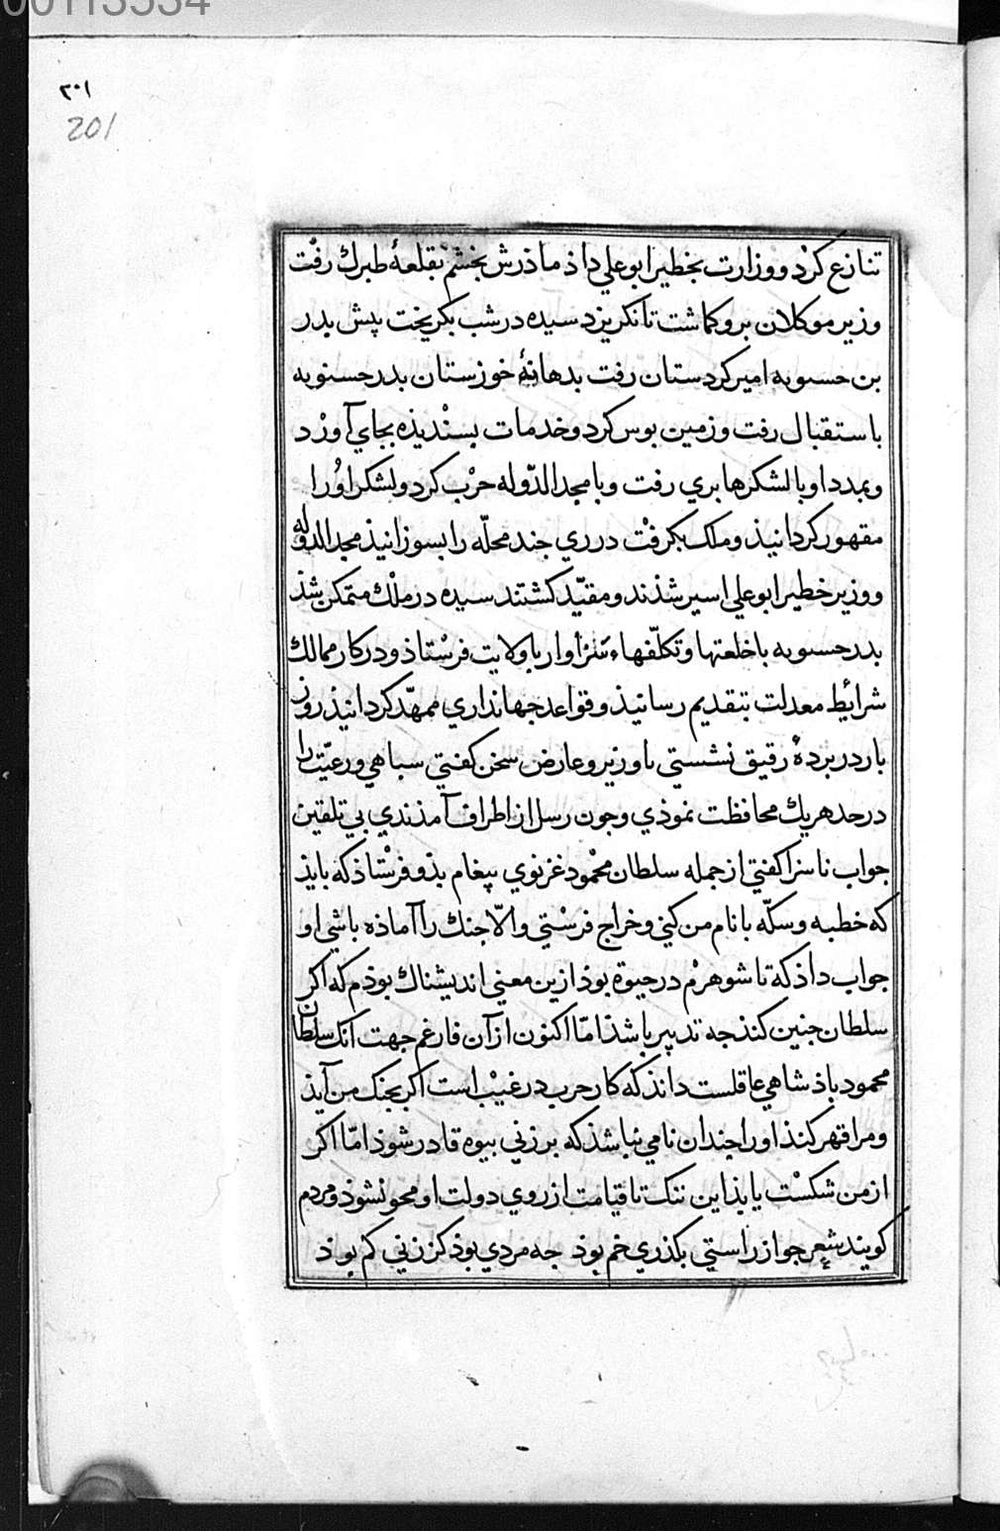 00113534
٢٠١
201
تنازع كرد ووزارت بخطير ابو علي داذ ماذرش بخشم بقلعۀ طبرك رفت
وزير موكلان برو كماشت تا نكريزد سيده در شب بكريخت پيش بدر
بن حسنويه امير كردستان رفت بدهانۀ خوزستان بدر حسنويه
باستقبال رفت وزمين بوس كرد وخدمات بسنديذه بجاي آورد
وبمدد او با لشكرها بري رفت وبا مجد الدّوله حرب كرد ولشكر اورا
مقهور كردانيذ وملك بكرفت در ري جند محلّه را بسوزانيذ مجد الدوله
ووزير خطير ابو علي اسير شذند ومقيّد كشتند سيده در ملك متمكن شذ
بدر حسنويه با خلعتها وتكلّفهاء سزاوار با ولايت فرستاذ ودر كار ممالك
شرائط معدلت بتقديم رسانيذ وقواعد جهانداري ممهّد كردانيذ روز
بار در بردۀ رقيق نشستي با وزير وعارض سخن كفتي سباهي ورعيّت را
در حد هريك محافظت نموذي وجون رسل از اطراف آمذندي بي تلقين
جواب ناسزا كفتي از جمله سلطان محمود غزنوي پيغام بذو فرستاذ كه بايذ
كه خطبه وسكّه با نام من كني وخراج فرستي والّا جنك را آماذه باشي او
جواب داذ كه تا شوهرم در حيوة بوذ ازين معني انديشناك بوذم كه اكر
سلطان جنين كنذ جه تدبير باشذ امّا اكنون از آن فارغم جهت انك سلطان
محمود باذشاهي عاقلست داند كه كار حرب در غيب است اكر بجنك من آيذ
ومرا قهر كنذ اورا جندان نامي نباشذ كه بر زني بيوه قادر شوذ امّا اكر
از من شكست يابذ اين ننك تا قيامت از روي دولت او محو نشوذ ومردم
كويند شعر جو از راستي بكذري خم بوذ جه مردي بوذ كز زني كم بوذ